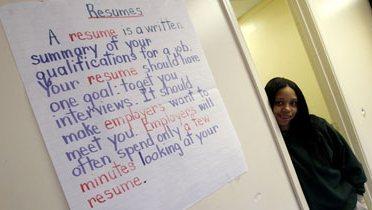 Resumes
A resume is a written
summary of your
qualifications for a job.
Your resume should have
one goal: to get you
interviews. It should
make employers want to
meet you. Employers will
often spend only a few
minutes looking at your
resume.